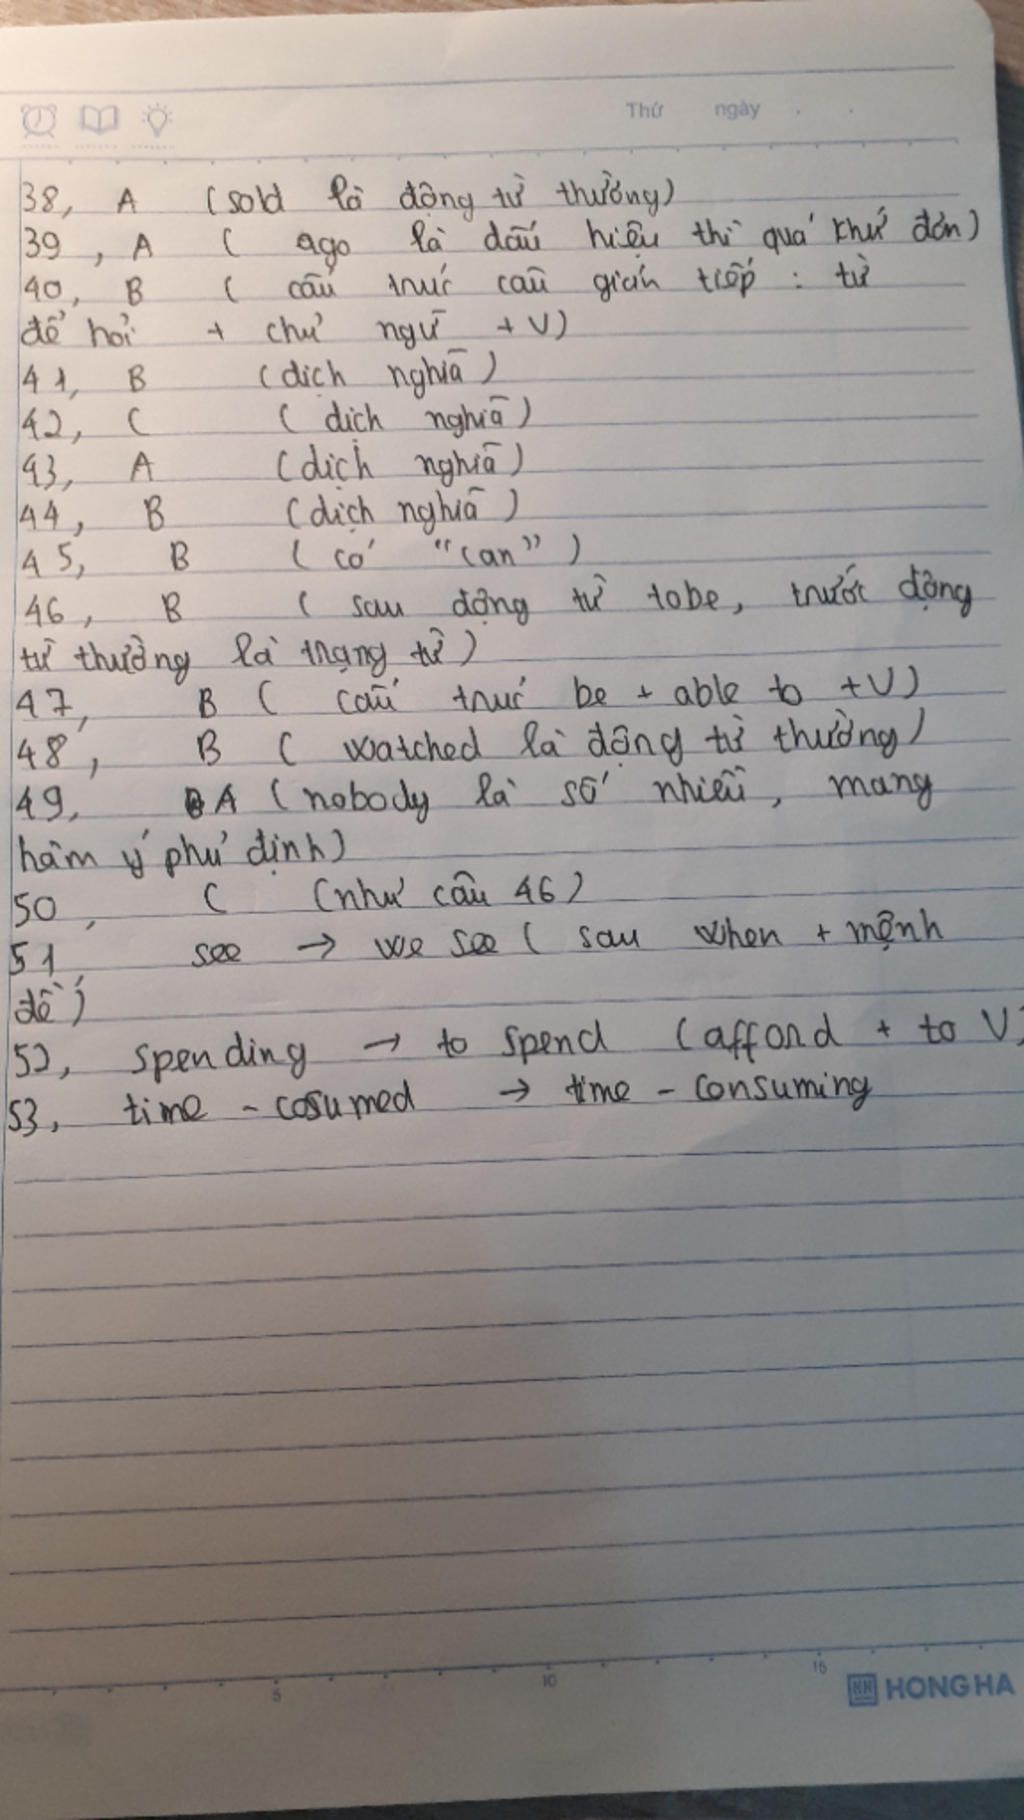 Thứ ngày
38, A (sold là động từ thường)
39, A ( ago là dấu hiệu thì quá khứ đơn)
40, B ( cấu trúc câu gián tiếp : từ
để hỏi + chủ ngữ + V)
41, B (dịch nghĩa)
42, C ( dịch nghĩa)
43, A (dịch nghĩa)
44, B (dịch nghĩa)
45, B ( có "can" )
46, B ( sau động từ tobe, trước động
từ thường là trạng từ)
47, B ( cấu trúc be + able to + V)
48, B ( watched là động từ thường)
49, A (nobody là số nhiều, mang
hàm ý phủ định)
50, C (như câu 46)
51, see → we see ( sau when + mệnh
đề)
52, spending → to spend (affond + to V)
53, time - cosumed → time - consuming
5 10 15
HH HONG HA